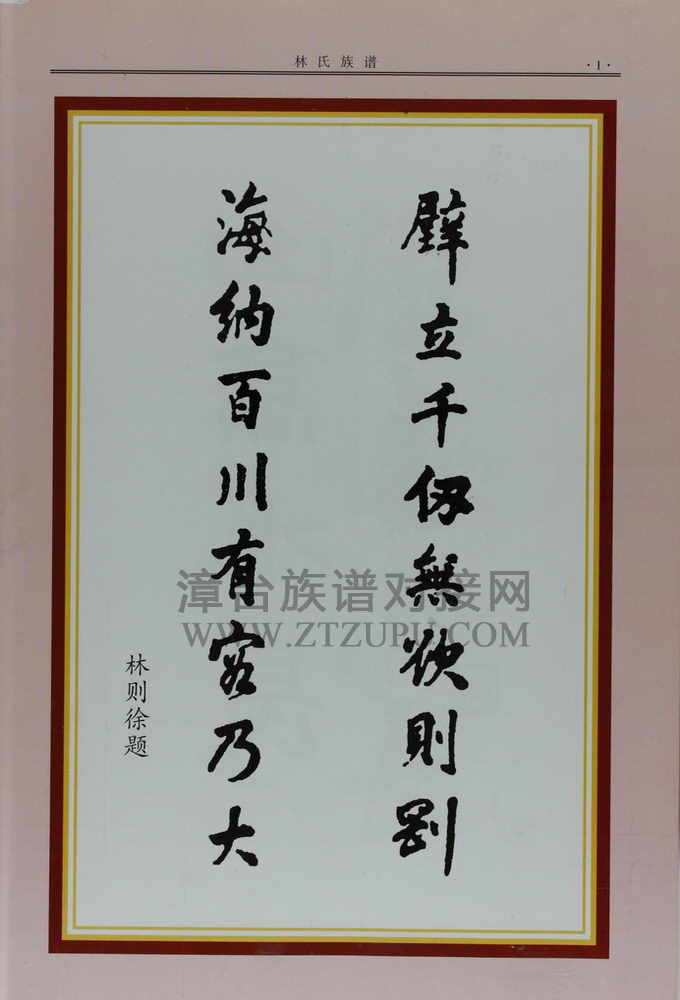 林氏族谱
·1·
壁立千仞無欲則剛
海纳百川有容乃大
林则徐题
漳台族谱对接网
WWW.ZTZUPU.COM